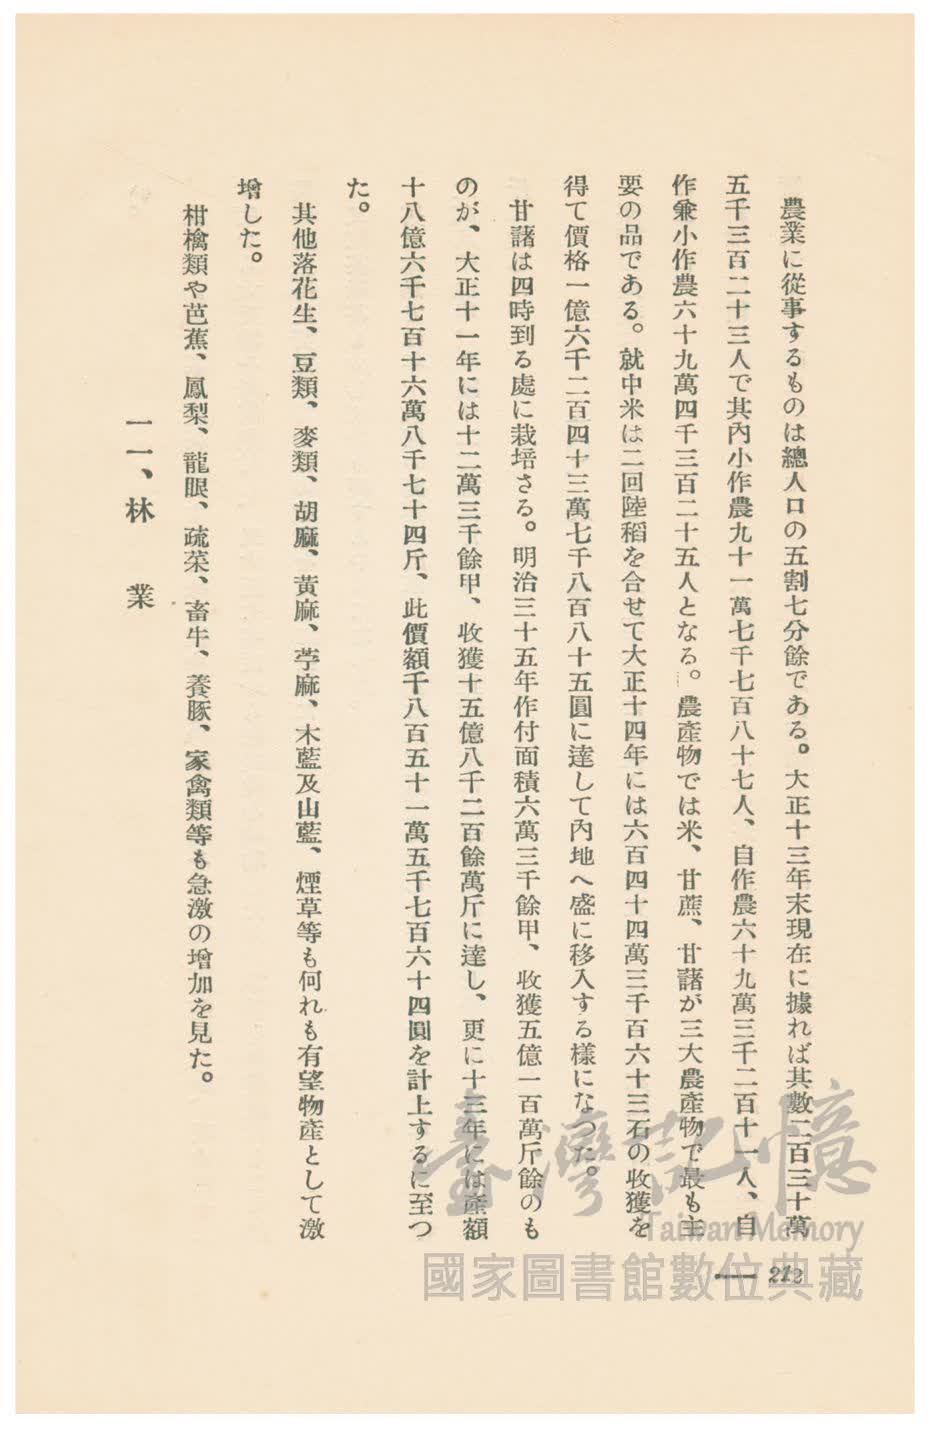 農業に從事するものは總人口の五割七分餘である。大正十三年末現在に據れば其數二百三十萬
五千三百二十三人で其內小作農九十一萬七千七百八十七人、自作農六十九萬三千二百十一人、自
作兼小作農六十九萬四千三百二十五人となる。農產物では米、甘蔗、甘諸が三大農產物で最も主
要の品である。就中米は二回陸稻を合せて大正十四年には六百四十四萬三千百六十三石の收獲を
得て價格一億六千二百四十三萬七千八百八十五圓に達して內地へ盛に移入する樣になつた。
甘諸は四時到る處に栽培さる。明治三十五年作付面積六萬三千餘甲、收獲五億一百萬斤餘のも
のが、大正十一年には十二萬三千餘甲、收獲十五億八千二百餘萬斤に達し、更に十三年には產額
十八億六千七百十六萬八千七十四斤、此價額千八百五十一萬五千七百六十四圓を計上するに至つ
た。
其他落花生、豆類、麥類、胡麻、黃麻、苧麻、木藍及山藍、煙草等も何れも有望物產として激
增した。
柑橘類や芭蕉、鳳梨、龍眼、疏菜、畜牛、養豚、家禽類等も急激の增加を見た。
一一、林　業
— 212
臺灣記憶
Taiwan Memory
國家圖書館數位典藏